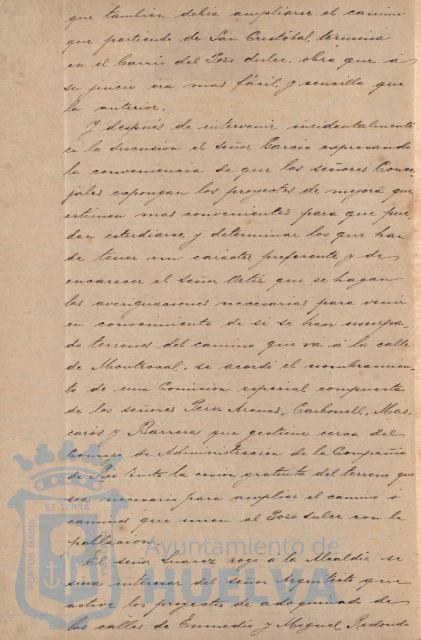 que tambien debia ampliarse el camino
que partiendo de San Cristóbal, termina
en el Barrio del Pozo dulce, obra que á
su juicio era mas fácil y sencilla que
la anterior.
Y despues de intervenir incidentalmente
en la discusion el señor Garcia expresando
la conveniencia de que los señores Conce-
jales expongan los proyectos de mejora que
estimen mas convenientes para que pue-
dan estudiarse y determinar los que han
de tener un carácter preferente y de
encarecer el señor Ortiz que se hagan
las averiguaciones necesarias para venir
en conocimiento de si se han usurpa-
do terrenos del camino que vá á la calle
de Montrocal, se acordó el nombramien-
to de una Comision especial compuesta
de los señores Perez Arenas, Carbonell, Mas-
carós y Barrera que gestione cerca del
Consejo de Administracion de la Compañia
de Rio tinto la cesion gratuita del terreno que
sea necesario para ampliar el camino o
caminos que unen al Pozo dulce con la
poblacion.
El señor Suarez rogó a la Alcaldia se
sirva interesar del señor Arquitecto que
active los proyectos de adoquinado de
las calles de Enmedio y Miguel Redondo
PORTUS MARIS
ET TERRÆ
Ayuntamiento de
HUELVA